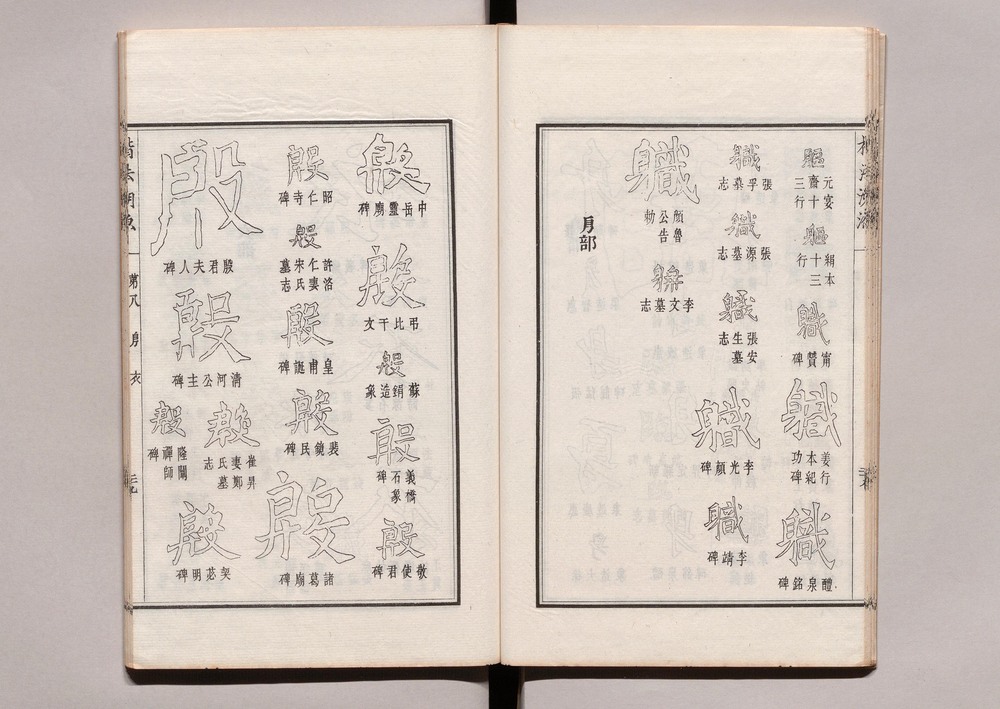 軀
元宴齋十三行
軀
絹本十三行
軄
甯贊碑
軄
姜行本紀功碑
軄
醴泉銘碑
軄
張孚墓志
軄
張源墓志
軄
張安生墓志
軄
李光顏碑
軄
李靖碑
軄
顏魯公告勅
李文墓志
㐆部
殷
中岳靈廟碑
殷
弔比干文
殷
蘇絹造象
殷
義橋石象碑
殷
敬使君碑
殷
昭仁寺碑
殷
許洛仁妻宋氏墓志
殷
皇甫誕碑
殷
裴鏡民碑
殷
諸葛廟碑
殷
殷君夫人碑
殷
清河公主碑
殷
崔昇妻鄭氏墓志
殷
隆闡禪師碑
殷
契苾明碑
楷法溯源 弟八 㐆 衣